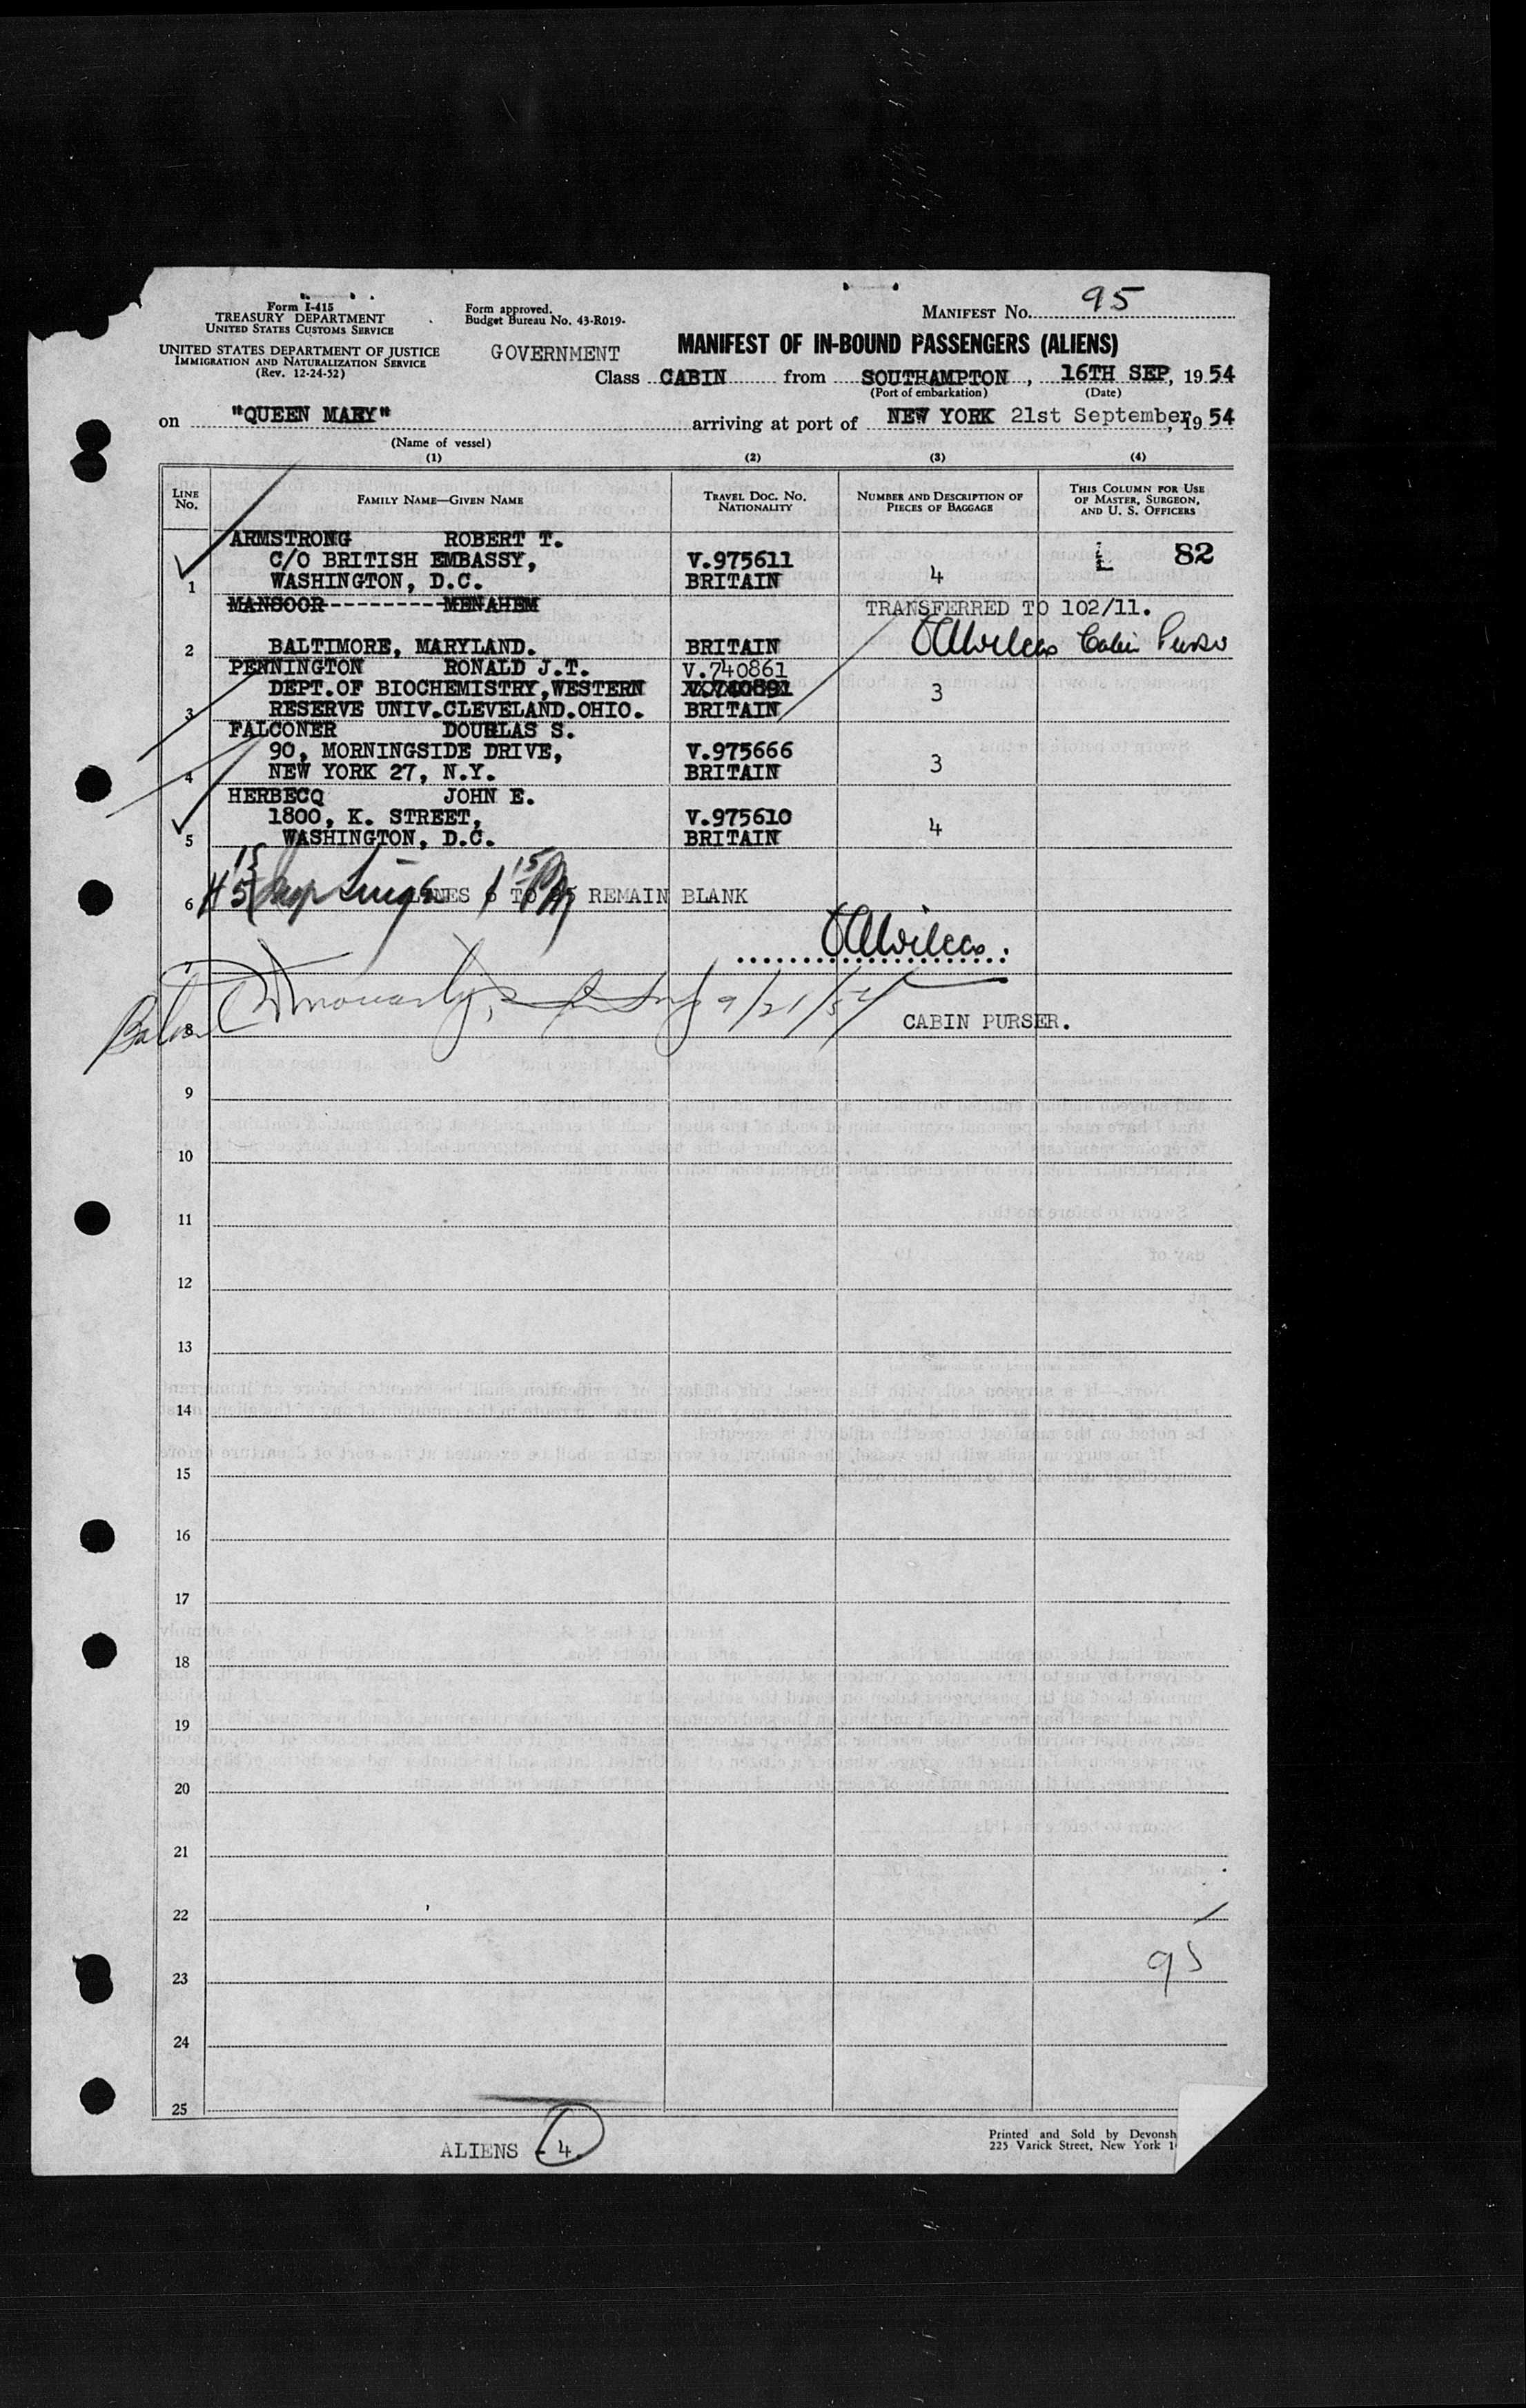 Form I-415
TREASURY DEPARTMENT
UNITED STATES CUSTOMS SERVICE
UNITED STATES DEPARTMENT OF JUSTICE
IMMIGRATION AND NATURALIZATION SERVICE
(Rev. 12-24-52)
Form approved.
Budget Bureau No. 43-R019-
GOVERNMENT
MANIFEST NO. 95
MANIFEST OF IN-BOUND PASSENGERS (ALIENS)
Class CABIN from SOUTHAMPTON, 16TH SEP, 1954
(Port of embarkation) (Date)
on "QUEEN MARY" arriving at port of NEW YORK 21st September, 1954
(Name of vessel)
(1) (2) (3) (4)
LINE NO. FAMILY NAME—GIVEN NAME TRAVEL DOC. NO. NATIONALITY NUMBER AND DESCRIPTION OF PIECES OF BAGGAGE THIS COLUMN FOR USE OF MASTER, SURGEON, AND U. S. OFFICERS
ARMSTRONG ROBERT T.
C/O BRITISH EMBASSY, V.975611 82
1 WASHINGTON, D.C. BRITAIN 4
MANSOOR---------MENAHEM TRANSFERRED TO 102/11.
2 BALTIMORE, MARYLAND. BRITAIN Cabin Purser
PENNINGTON RONALD J.T. V.740861
DEPT.OF BIOCHEMISTRY,WESTERN V.740891 3
3 RESERVE UNIV.CLEVELAND.OHIO. BRITAIN
FALCONER DOUGLAS S.
90, MORNINGSIDE DRIVE, V.975666 3
4 NEW YORK 27, N.Y. BRITAIN
HERBECQ JOHN E.
1800, K. STREET, V.975610 4
5 WASHINGTON, D.C. BRITAIN
6 LINES 6 TO 25 REMAIN BLANK
7
8 9/21/54 CABIN PURSER.
9
10
11
12
13
14
15
16
17
18
19
20
21
22
95
23
24
25
ALIENS - 4.
Printed and Sold by Devonsh
225 Varick Street, New York 1